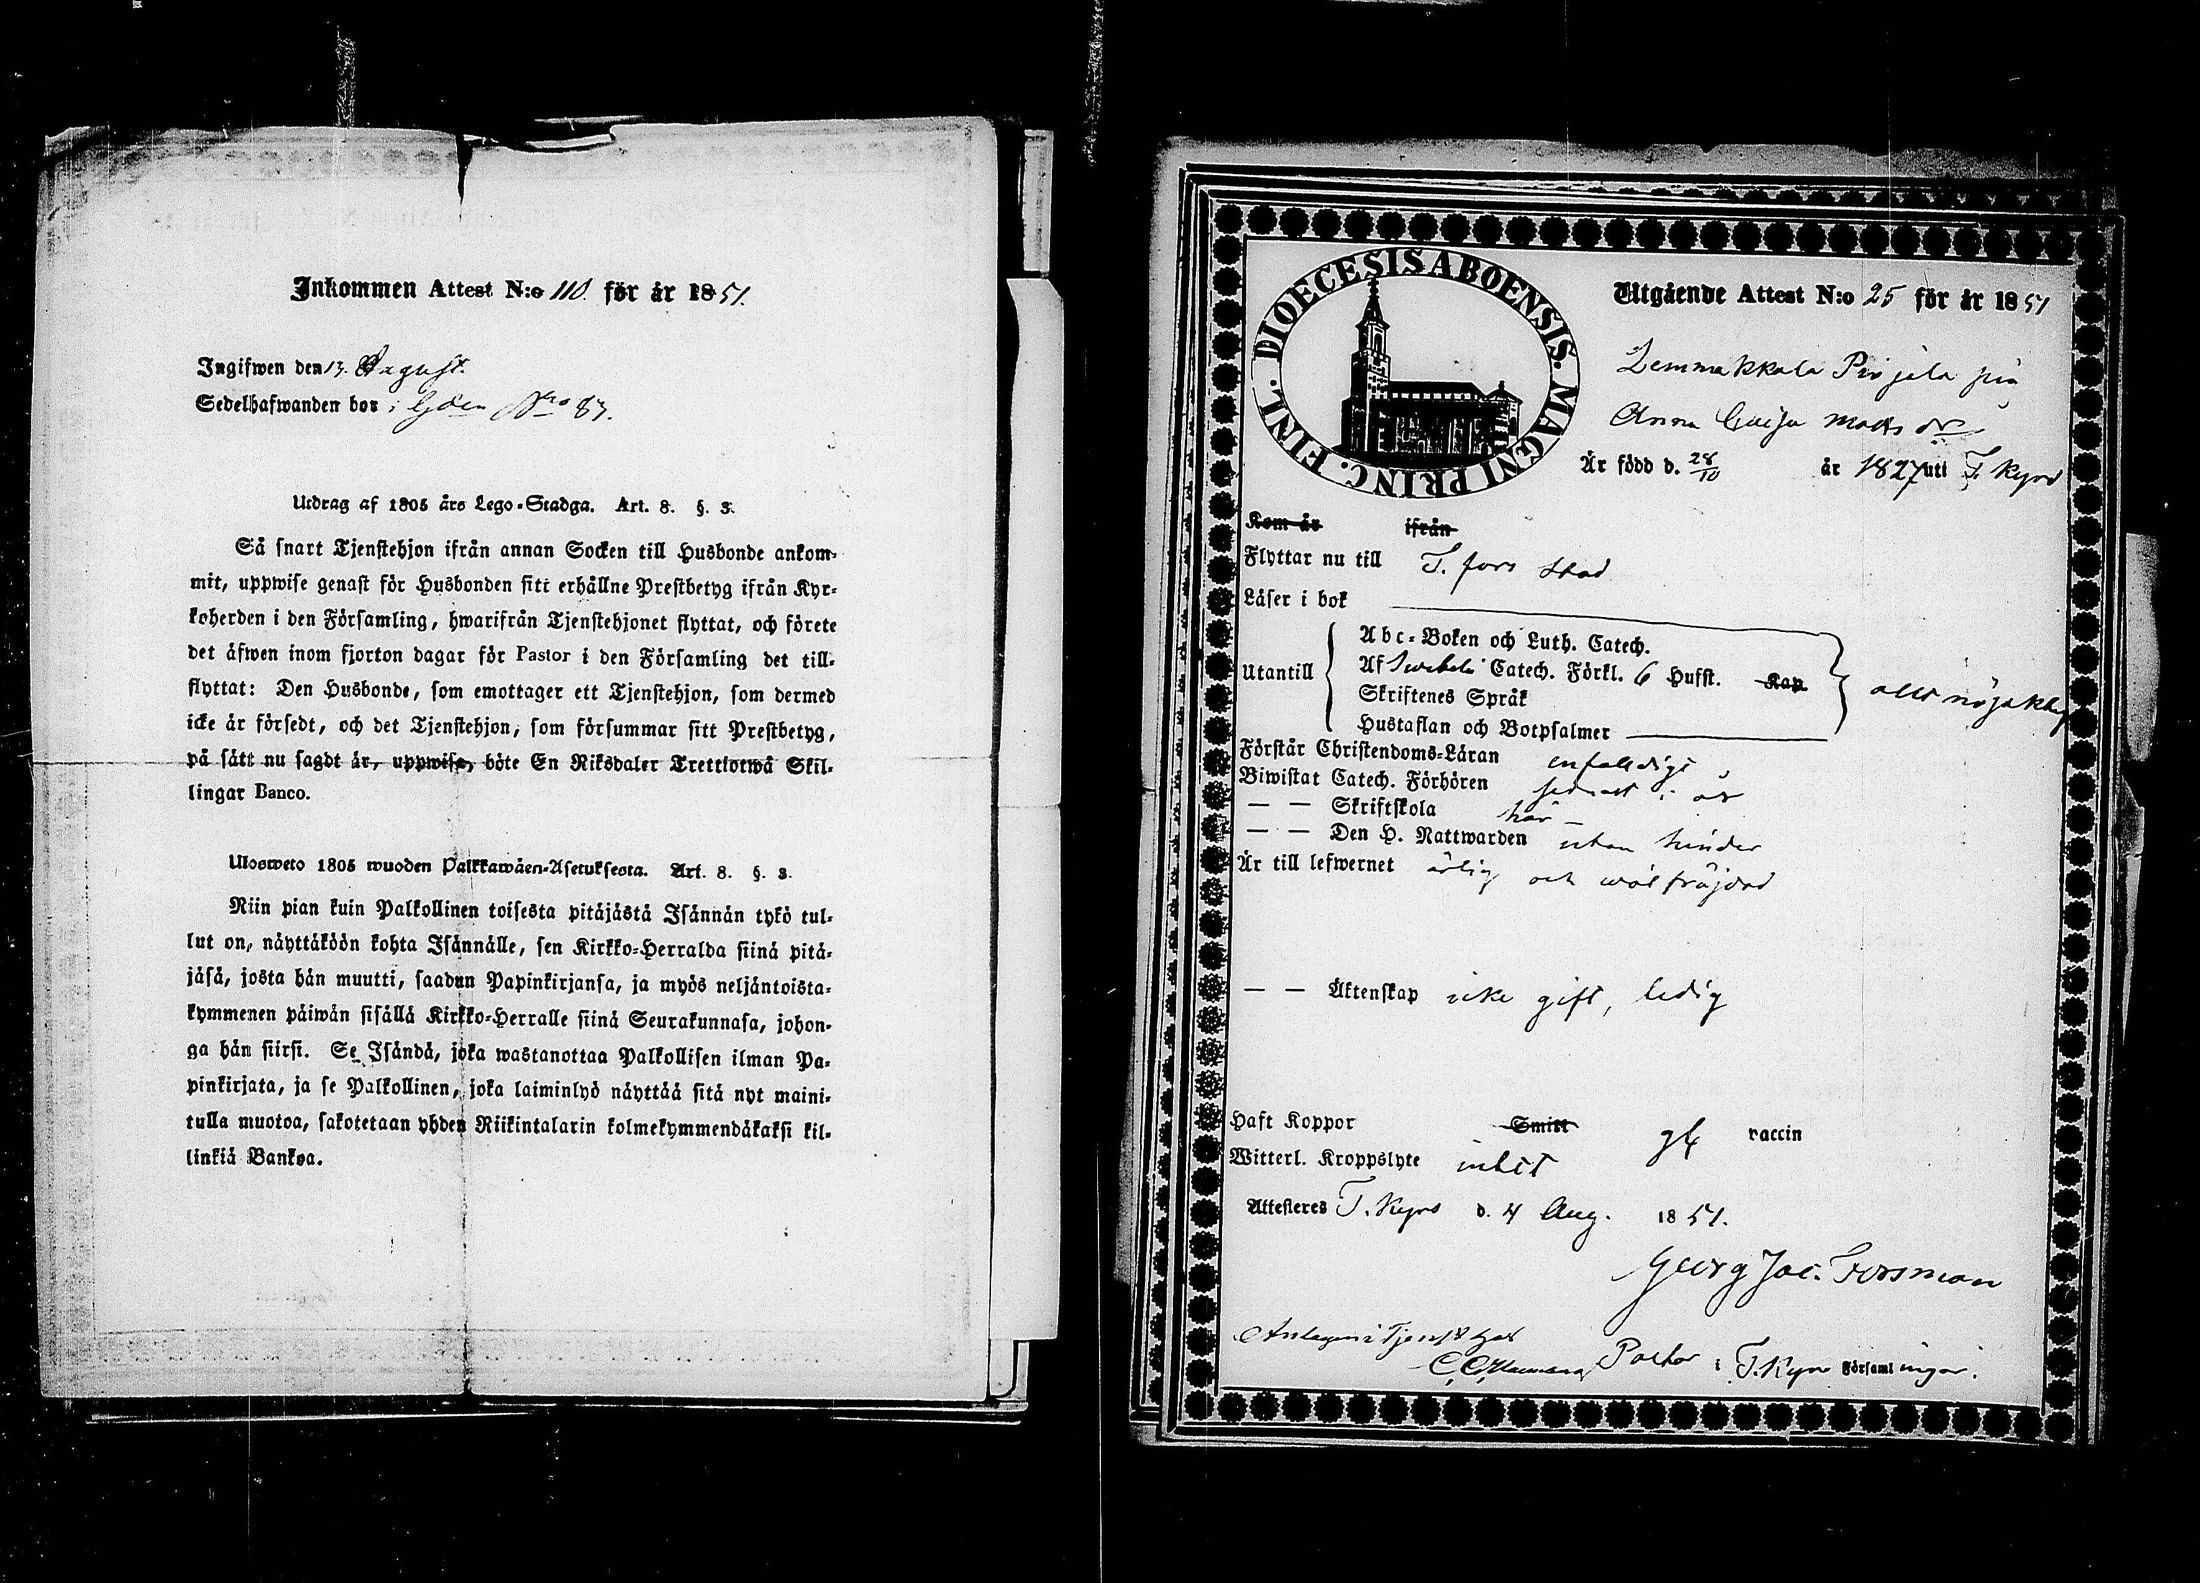 Inkommen Attest N:o 110. för år 1851.
Ingifwen den 13. August.
Sedelhafwanden bor i Gden Nro 87.
Utdrag af 1805 års Lego-Stadga. Art. 8. §. 3.
Så snart Tjenstehjon ifrån annan Socken till Husbonde ankom-
mit, uppwise genast för Husbonden sitt erhållne Prestbetyg ifrån Kyr-
koherden i den Församling, hwarifrån Tjenstehjonet flyttat, och förete
det äfwen inom fjorton dagar för Pastor i den Församling det till-
flyttat: Den Husbonde, som emottager ett Tjenstehjon, som dermed
icke är försedt, och det Tjenstehjon, som försummar sitt Prestbetyg,
på sätt nu sagdt är, uppwisa, böte En Riksdaler Trettiotwå Skil-
lingar Banco.
Ulosweto 1805 wuoden Palkkawäen-Asetuksesta. Art. 8. §. 3.
Niin pian kuin Palkollinen toisesta pitäjästä Isännän tykö tul-
lut on, näyttäköön kohta Isännälle, sen Kirkko-Herralda siinä pitä-
jäsä, josta hän muutti, saadun Papinkirjansa, ja myös neljäntoista-
kymmenen päiwän sisällä Kirkko-Herralle siinä Seurakunnasa, johon-
ga hän siirsi. Se Isändä, joka wastanottaa Palkollisen ilman Pa-
pinkirjata, ja se Palkollinen, joka laiminlyö näyttää sitä nyt maini-
tulla muotoa, sakotetaan yhden Riikintalarin kolmekymmendäkaksi kil-
linkiä Bankoa.
DIOECESIS ABOENSIS. MAGNI PRINC. FINL.
Utgående Attest N:o 25 för år 1851
Lemmakkala Pirjola pig
Anna Caisa Mats dr
Är född d. 28/10 år 1827 uti T. Kyro
Kom år ifrån
Flyttar nu till T. fors stad
Läser i bok
Abc-Boken och Luth. Catech.
Utantill Af Swebeli Catech. Förkl. 6 Hufst. Kap.
Skriftenes Språk
Hustaflan och Botpsalmer
allt nöjaktig
Förstår Christendoms-Läran enfaldigt
Biwistat Catech. Förhören sednast i år
— — Skriftskola här —
— — Den H. Nattwarden utan hinder
Är till lefwernet ärlig och wälfräjdad
— — Äktenskap icke gift, ledig
Haft Koppor Smitt gt vaccin
Witterl. Kroppslyte intet
Attesteres T. Kyro d. 4 Aug. 1851.
Georg Jac. Forsman
Antagen i Tjenst hos
Pastor i T. Kyro Församlingar.